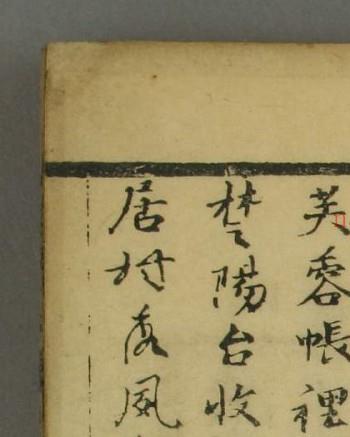 芙蓉帳裡
楚陽台收
居村底風